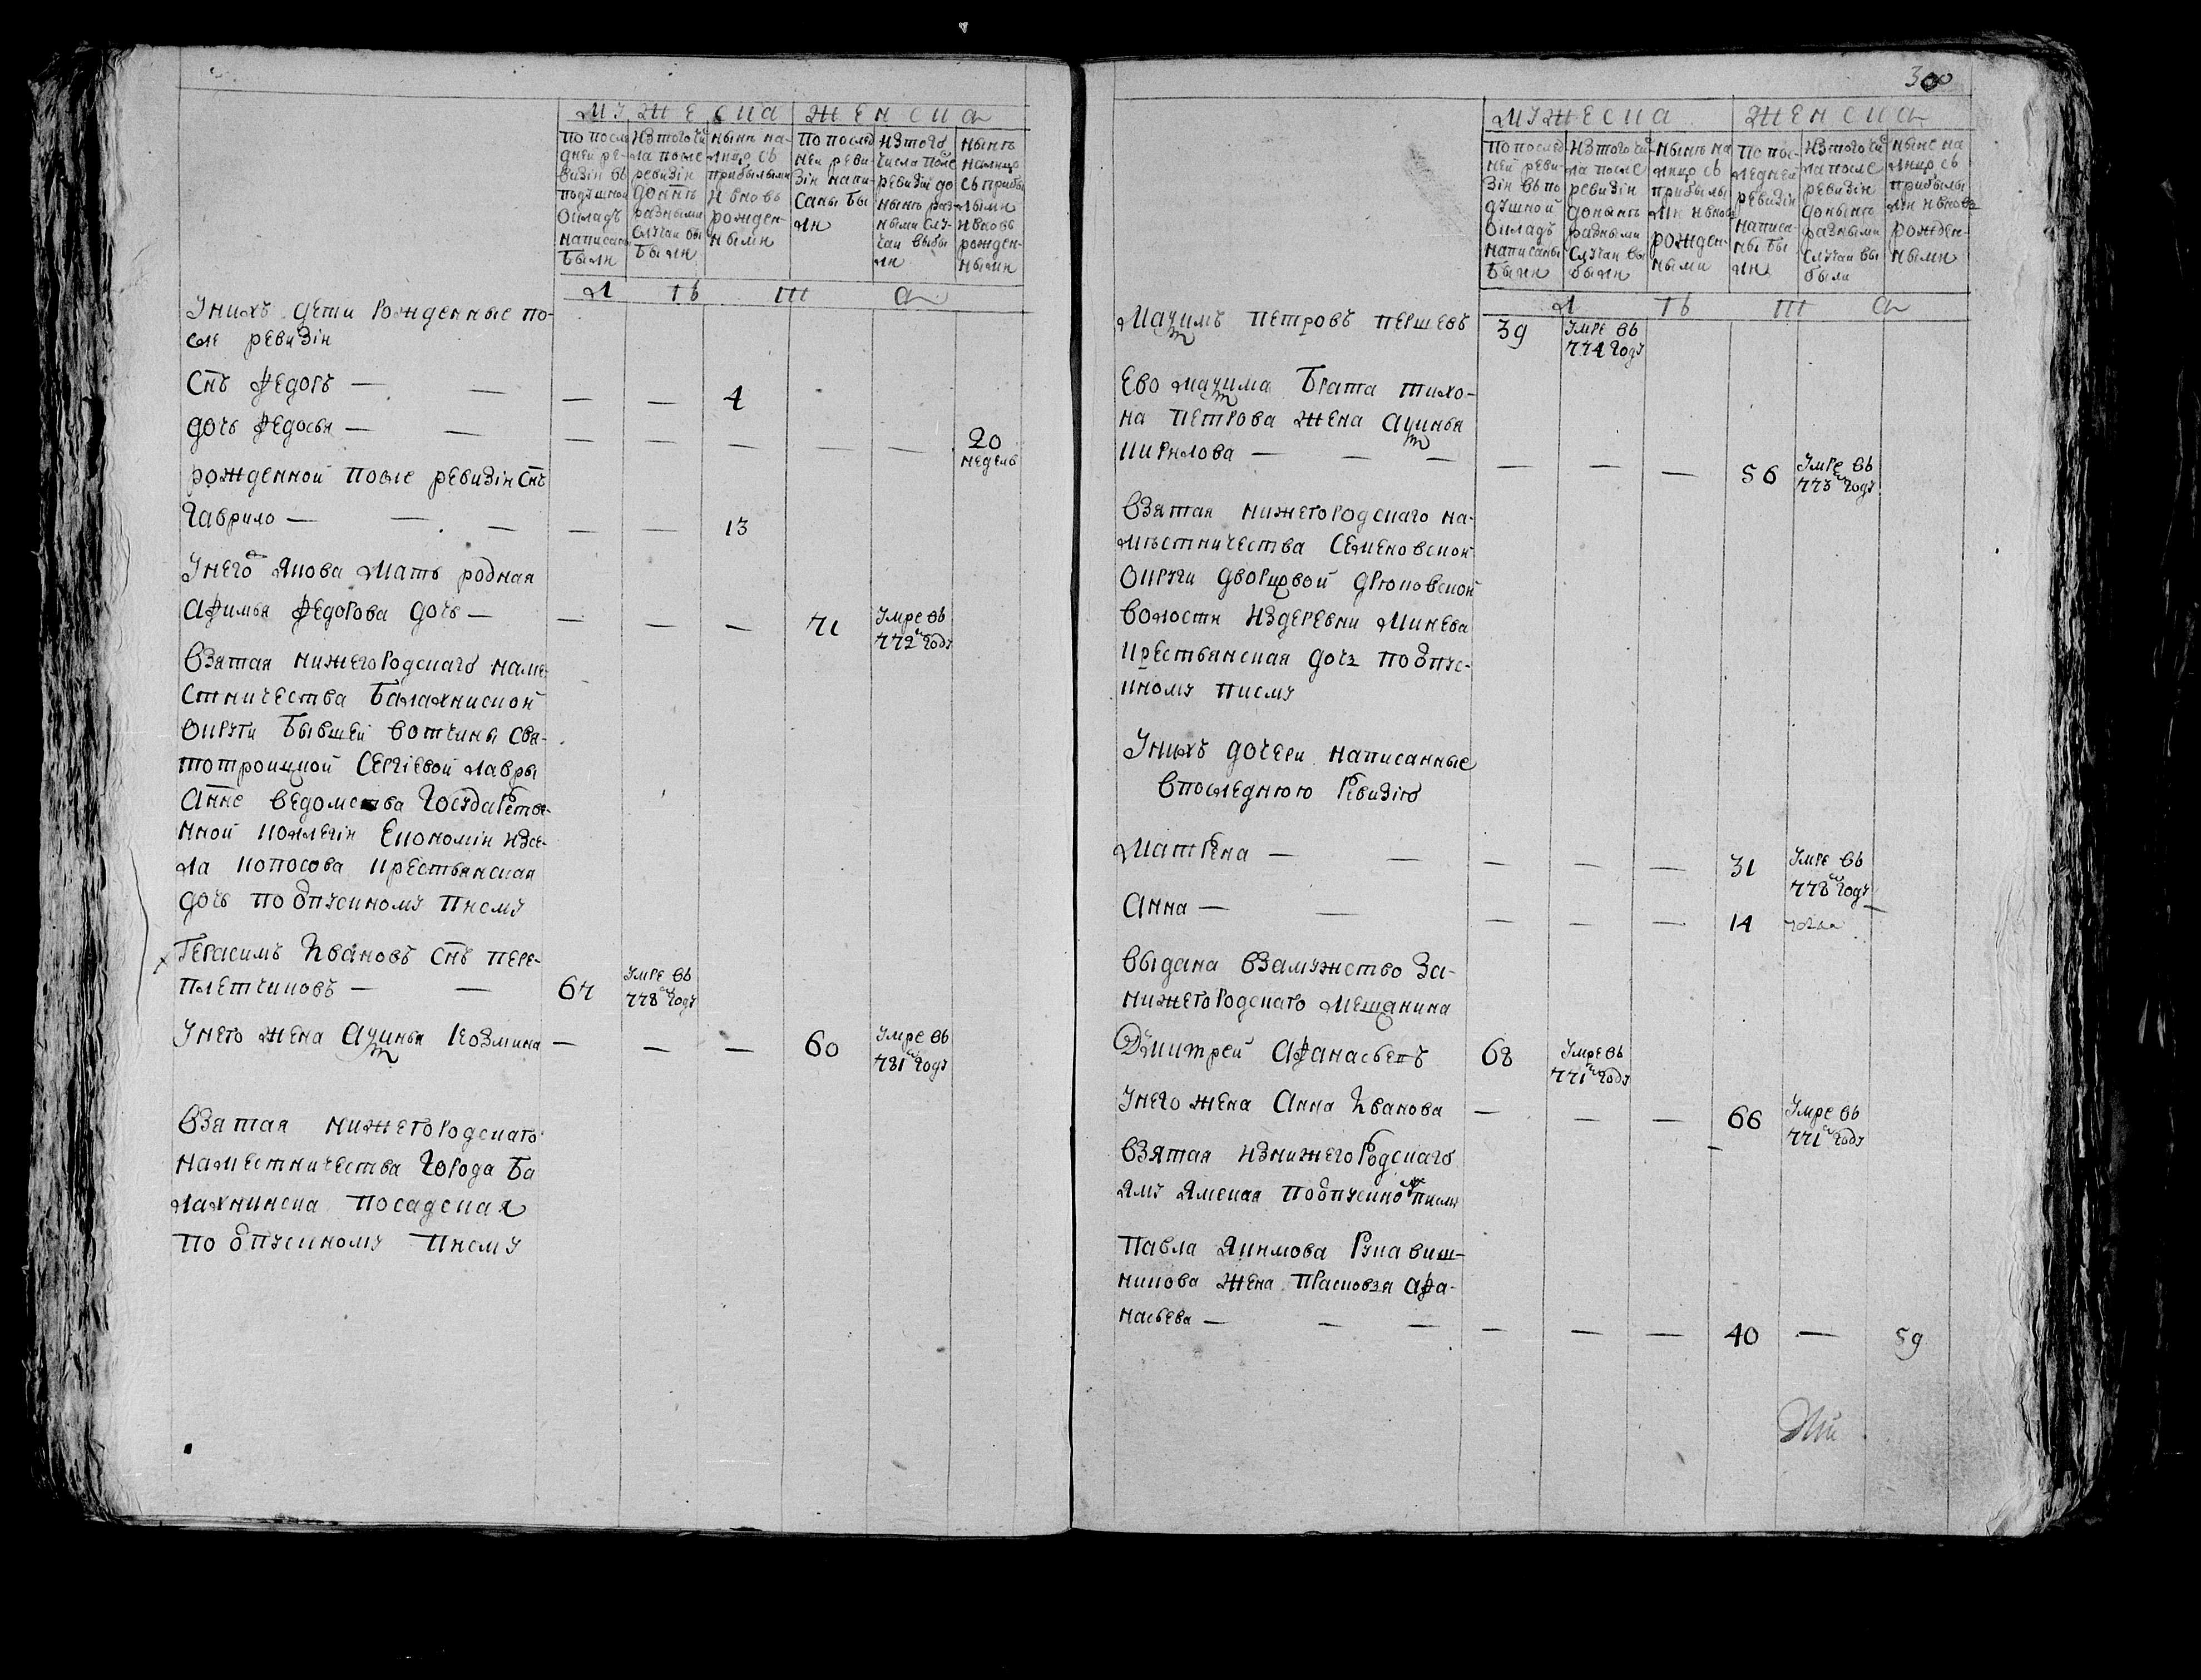 мужеска женска
по после
дней ре-
визіи въ
подушной
окладъ
написаны
были
из того чи
ла после
ревизіи
донынѣ
разными
случаи вы
были
нынѣ на-
лицо съ
прибылыми
и вновь
рожден-
ными
по послед
ней реви-
зіи напи-
саны бы
ли
из того
числа после
ревизіи до
нынѣ раз-
ными слу-
чаи выбы
ли
нынѣ
налицо
съ прибы
лыми
и вновь
рожден-
ными
л ѣ т а
У нихъ дети рожденные по-
сле ревизіи
снъ Федоръ — — — — 4
дочь Федосья — — — — — — — 20
недель
рожденной после ревизіи снъ
Гаврило — — — — — 13
У него Якова мать родная
Афимья Федорова дочь — — — — 71 умре въ
772м году
взятая нижегородскаго наме-
стничества балахниской
округи бывшей вотчины свя-
тотроицкой Сергіевой лавры
а нне ведомства государстве-
нной коллегіи економіи из се-
ла копосова крестьянская
дочь по отпускному писму
Герасимъ Ивановъ снъ пере-
плетчиковъ — — 67 умре въ
778м году
У него жена Аксинья Козмина — — — 60 умре въ
781м году
взятая нижегородскаго
наместничества города ба
лахнинска посадская
по отпускному писму
300
мужеска женска
по послед
ней реви-
зіи въ по
душной
окладъ
написаны
были
из того чи
ла после
ревизіи
донынѣ
разными
случаи вы
были
нынѣ на
лицо съ
прибылы
ми и вновь
рожден-
ными
по пос-
ледней
ревизіи
написа-
ны бы
ли
из того чи
ла после
ревизіи
донынѣ
разными
случаи вы
были
ныне на
лицо съ
прибылы
ми и вновь
рожден-
ными
л ѣ т а
Максимъ Петровъ першевъ 39 умре въ
774 году
Ево максима брата тихо-
на петрова жена аксинья
кирилова — — — — — — 56 умре въ
773м году
взятая нижегородскаго на-
мѣстничества семеновской
округи дворцовой дрюковской
волости из деревни минева
крестьянская дочь по отпус-
кному писму
У нихъ дочери написанные
в последнюю ревизію
Матрена — — — — — 31 умре въ
778м году
Анна — — — — — 14
выдана в замужство за-
нижегородскаго мещанина
Дмитрей Афанасьевъ 68 умре въ
771м году
У него жена Анна Иванова — — — 66 умре въ
771м году
взятая из нижегородскаго
яму ямская по отпускном писму
Павла Якимова Рукавиш-
никова жена Прасковья афа-
насьева — — — — — — 40 — 59